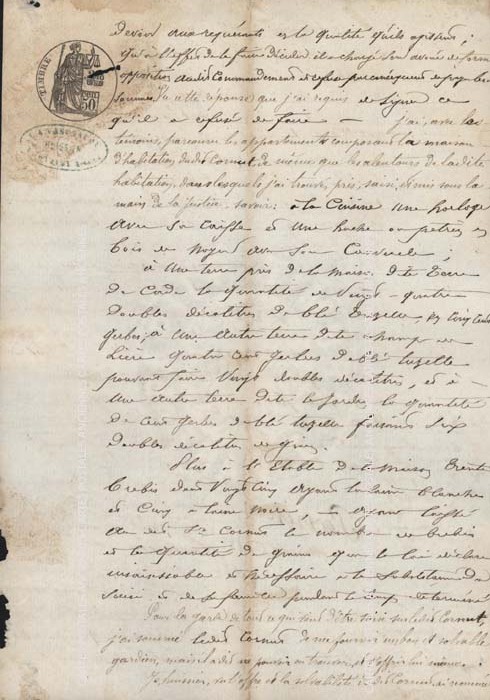 TIMBRE
50
devoir aux requérants est la qualité qu'ils agissent ;
qu'à l'effet de la faire décider il a chargé son avoué de former
opposition audit Commandement et refusé par conséquent de payer les
sommes. Vu cette réponse que j'ai requis de signer ce
qu'il a refusé de faire — j'ai, avec les
témoins, parcouru les appartements composant la maison
d'habitation dudit Cornut, de même que les alentours de ladite
habitation, dans lesquels j'ai trouvé, pris, saisi, et mis sous la
main de la justice, savoir : à la Cuisine une horloge
avec sa caisse et une huche ou pétrin en
bois de noyer avec son Couvercle ;
à une terre près de la maison dite
de la quantité de vingt-quatre
doubles décalitres de blé tuzelle, ou cinq cents
gerbes ; à une autre terre dite champ
quatre cent gerbes de blé tuzelle
pouvant faire vingt doubles décalitres, et à
une autre terre dite la quantité
de cent gerbes de blé tuzelle faisant six
doubles décalitres
Plus à l'Etable de la Maison trente
brebis dont vingt cinq ayant la laine blanche
et cinq à laine noire, — ayant laissé
au dit Sr Cornut le nombre de brebis
et la quantité de grains que la loi déclare
insaisissable et nécessaire à la subsistance du
saisi et de sa famille pendant le temps déterminé
Pour la garde de tout ce que dessus d'être saisi sur ledit Cornut,
j'ai sommé ledit Cornut de me fournir un bon et solvable
gardien, mais il a dit ne pouvoir en trouver, et s'offrir lui même ;
l'offre et la solvabilité dudit Cornut